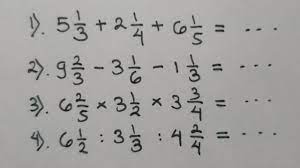 1). 5 1/3 + 2 1/4 + 6 1/5 = ...
2). 9 2/3 - 3 1/6 - 1 1/3 = ...
3). 6 2/5 × 3 1/2 × 3 3/4 = ...
4). 6 1/2 : 3 1/3 : 4 2/4 = ...